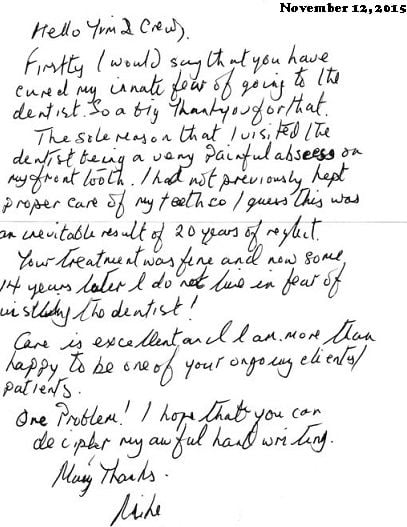 November 12, 2015
Hello Yim & Crew,
Firstly I would say that you have
cured my innate fear of going to the
dentist. So a big Thankyou for that.
The sole reason that I visited the
dentist being a very painful abscess on
my front tooth. I had not previously kept
proper care of my teeth so I guess this was
an inevitable result of 20 years of neglect.
Your treatment was fine and now some
14 years later I do not live in fear of
visiting the dentist!
Care is excellent and I am more than
happy to be one of your ongoing clients/
patients.
One Problem! I hope that you can
decipher my awful hand writing.
Many Thanks.
Mike